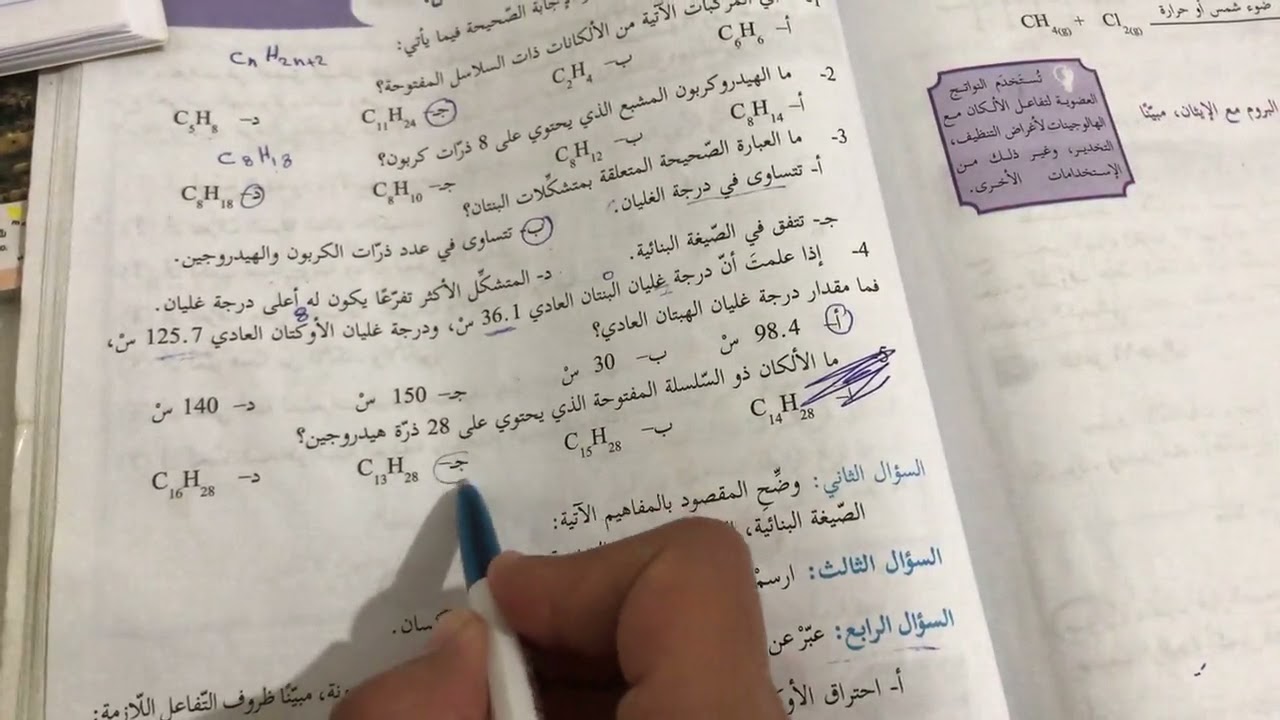 الإجابة الصّحيحة فيما يأتي:
المركبات الآتية من الألكانات ذات السلاسل المفتوحة؟
CnH2n+2
أ– C6H6 ب– C2H4 جـ– C11H24 د– C5H8
2- ما الهيدروكربون المشبع الذي يحتوي على 8 ذرّات كربون؟
C8H18
أ– C8H14 ب– C8H12 جـ– C8H10 د– C8H18
3- ما العبارة الصّحيحة المتعلقة بمتشكِّلات البنتان؟
أ– تتساوى في درجة الغليان. ب– تتساوى في عدد ذرّات الكربون والهيدروجين.
جـ– تتفق في الصّيغة البنائية. د– المتشكِّل الأكثر تفرّعًا يكون له أعلى درجة غليان.
4- إذا علمتَ أنّ درجة غليان البنتان العادي 36.1 سْ، ودرجة غليان الأوكتان العادي 125.7 سْ،
8
فما مقدار درجة غليان الهبتان العادي؟
أ– 98.4 سْ ب– 30 سْ جـ– 150 سْ د– 140 سْ
ما الألكان ذو السّلسلة المفتوحة الذي يحتوي على 28 ذرّة هيدروجين؟
C14H28 ب– C15H28 جـ– C13H28 د– C16H28
السؤال الثاني: وضِّحِ المقصود بالمفاهيم الآتية:
الصّيغة البنائية،
السؤال الثالث: ارسمْ
السؤال الرابع: عبّرْ عن
مبيّنًا ظروف التّفاعل اللّازمة:
أ– احتراق
CH4(g) + Cl2(g) ضوء شمس أو حرارة
البروم مع الإيثان، مبيّنًا
تُستخدَم النواتج
العضوية لتفاعل الألكان مع
الهالوجينات لأغراض التنظيف،
التخدير، وغير ذلك من
الإستخدامات الأخرى.